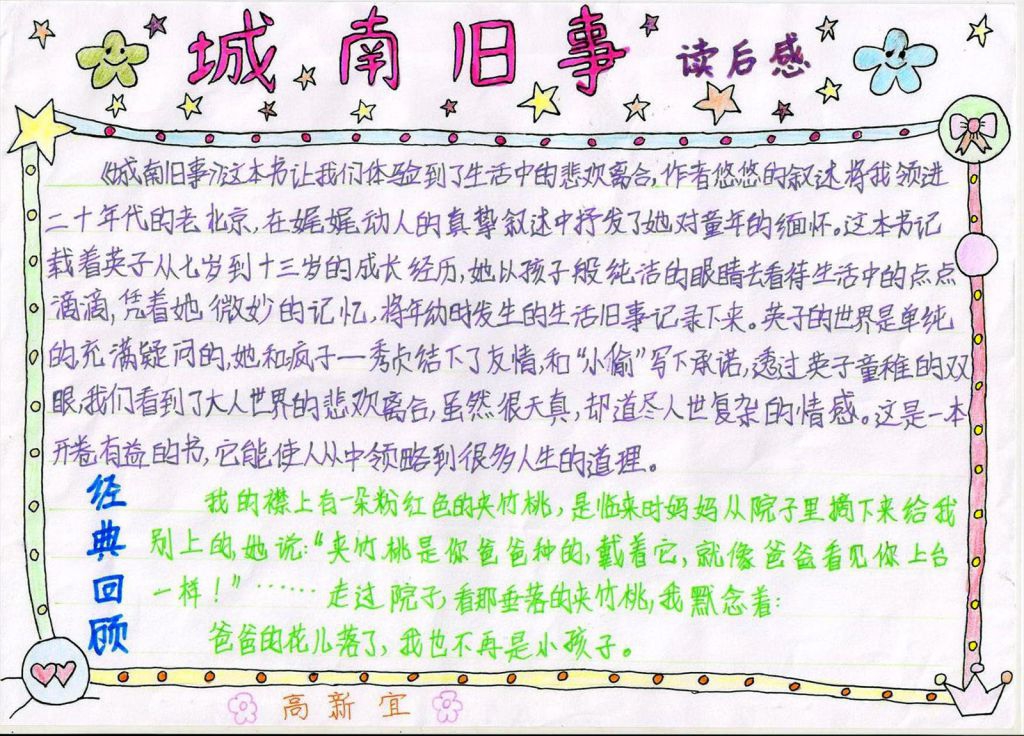 城南旧事 读后感
《城南旧事》这本书让我们体验到了生活中的悲欢离合,作者悠悠的叙述将我领进
二十年代的老北京,在娓娓动人的真挚叙述中抒发了她对童年的缅怀。这本书记
载着英子从七岁到十三岁的成长经历,她以孩子般纯洁的眼睛去看待生活中的点点
滴滴,凭着她微妙的记忆,将年幼时发生的生活旧事记录下来。英子的世界是单纯
的充满疑问的,她和疯子一秀贞结下了友情,和“小偷”写下承诺,透过英子童稚的双
眼,我们看到了大人世界的悲欢离合,虽然很天真,却道尽人世复杂的情感。这是一本
开卷有益的书,它能使人从中领略到很多人生的道理。
经典回顾
我的襟上有一朵粉红色的夹竹桃,是临来时妈妈从院子里摘下来给我
别上的,她说:“夹竹桃是你爸爸种的,戴着它,就像爸爸看见你上台
一样!”……走过院子,看那垂落的夹竹桃,我默念着:
爸爸的花儿落了,我也不再是小孩子。
高新宜